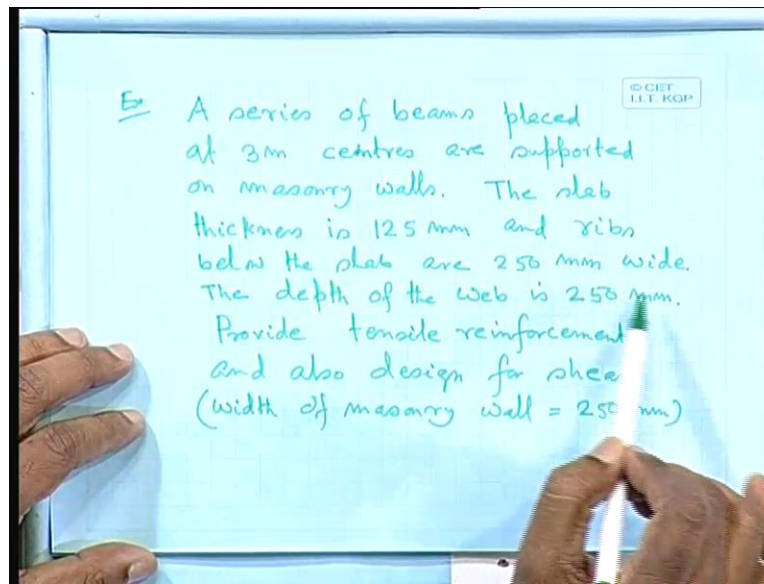 Ex A series of beams placed
at 3m centres are supported
on masonry walls. The slab
thickness is 125 mm and ribs
below the slab are 250 mm wide.
The depth of the web is 250 mm.
Provide tensile reinforcement
and also design for shea
(width of masonry wall = 250 mm)
© CET
I.I.T. KGP